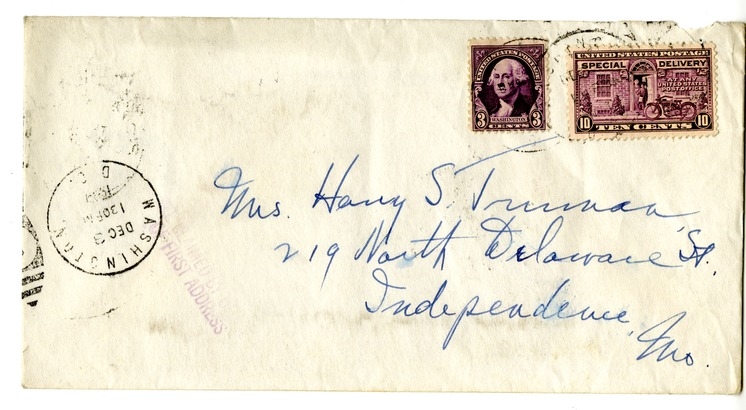 UNITED STATES POSTAGE
WASHINGTON
3 CENTS 3
UNITED STATES POSTAGE
SPECIAL DELIVERY
AT ANY
UNITED STATES
POST OFFICE
10 TEN CENTS 10
Mrs. Harry S. Truman
219 North Delaware St.
Independence,
Mo.
WASHINGTON
DEC 3
130 PM
D.C.
FIRST ADDRESS